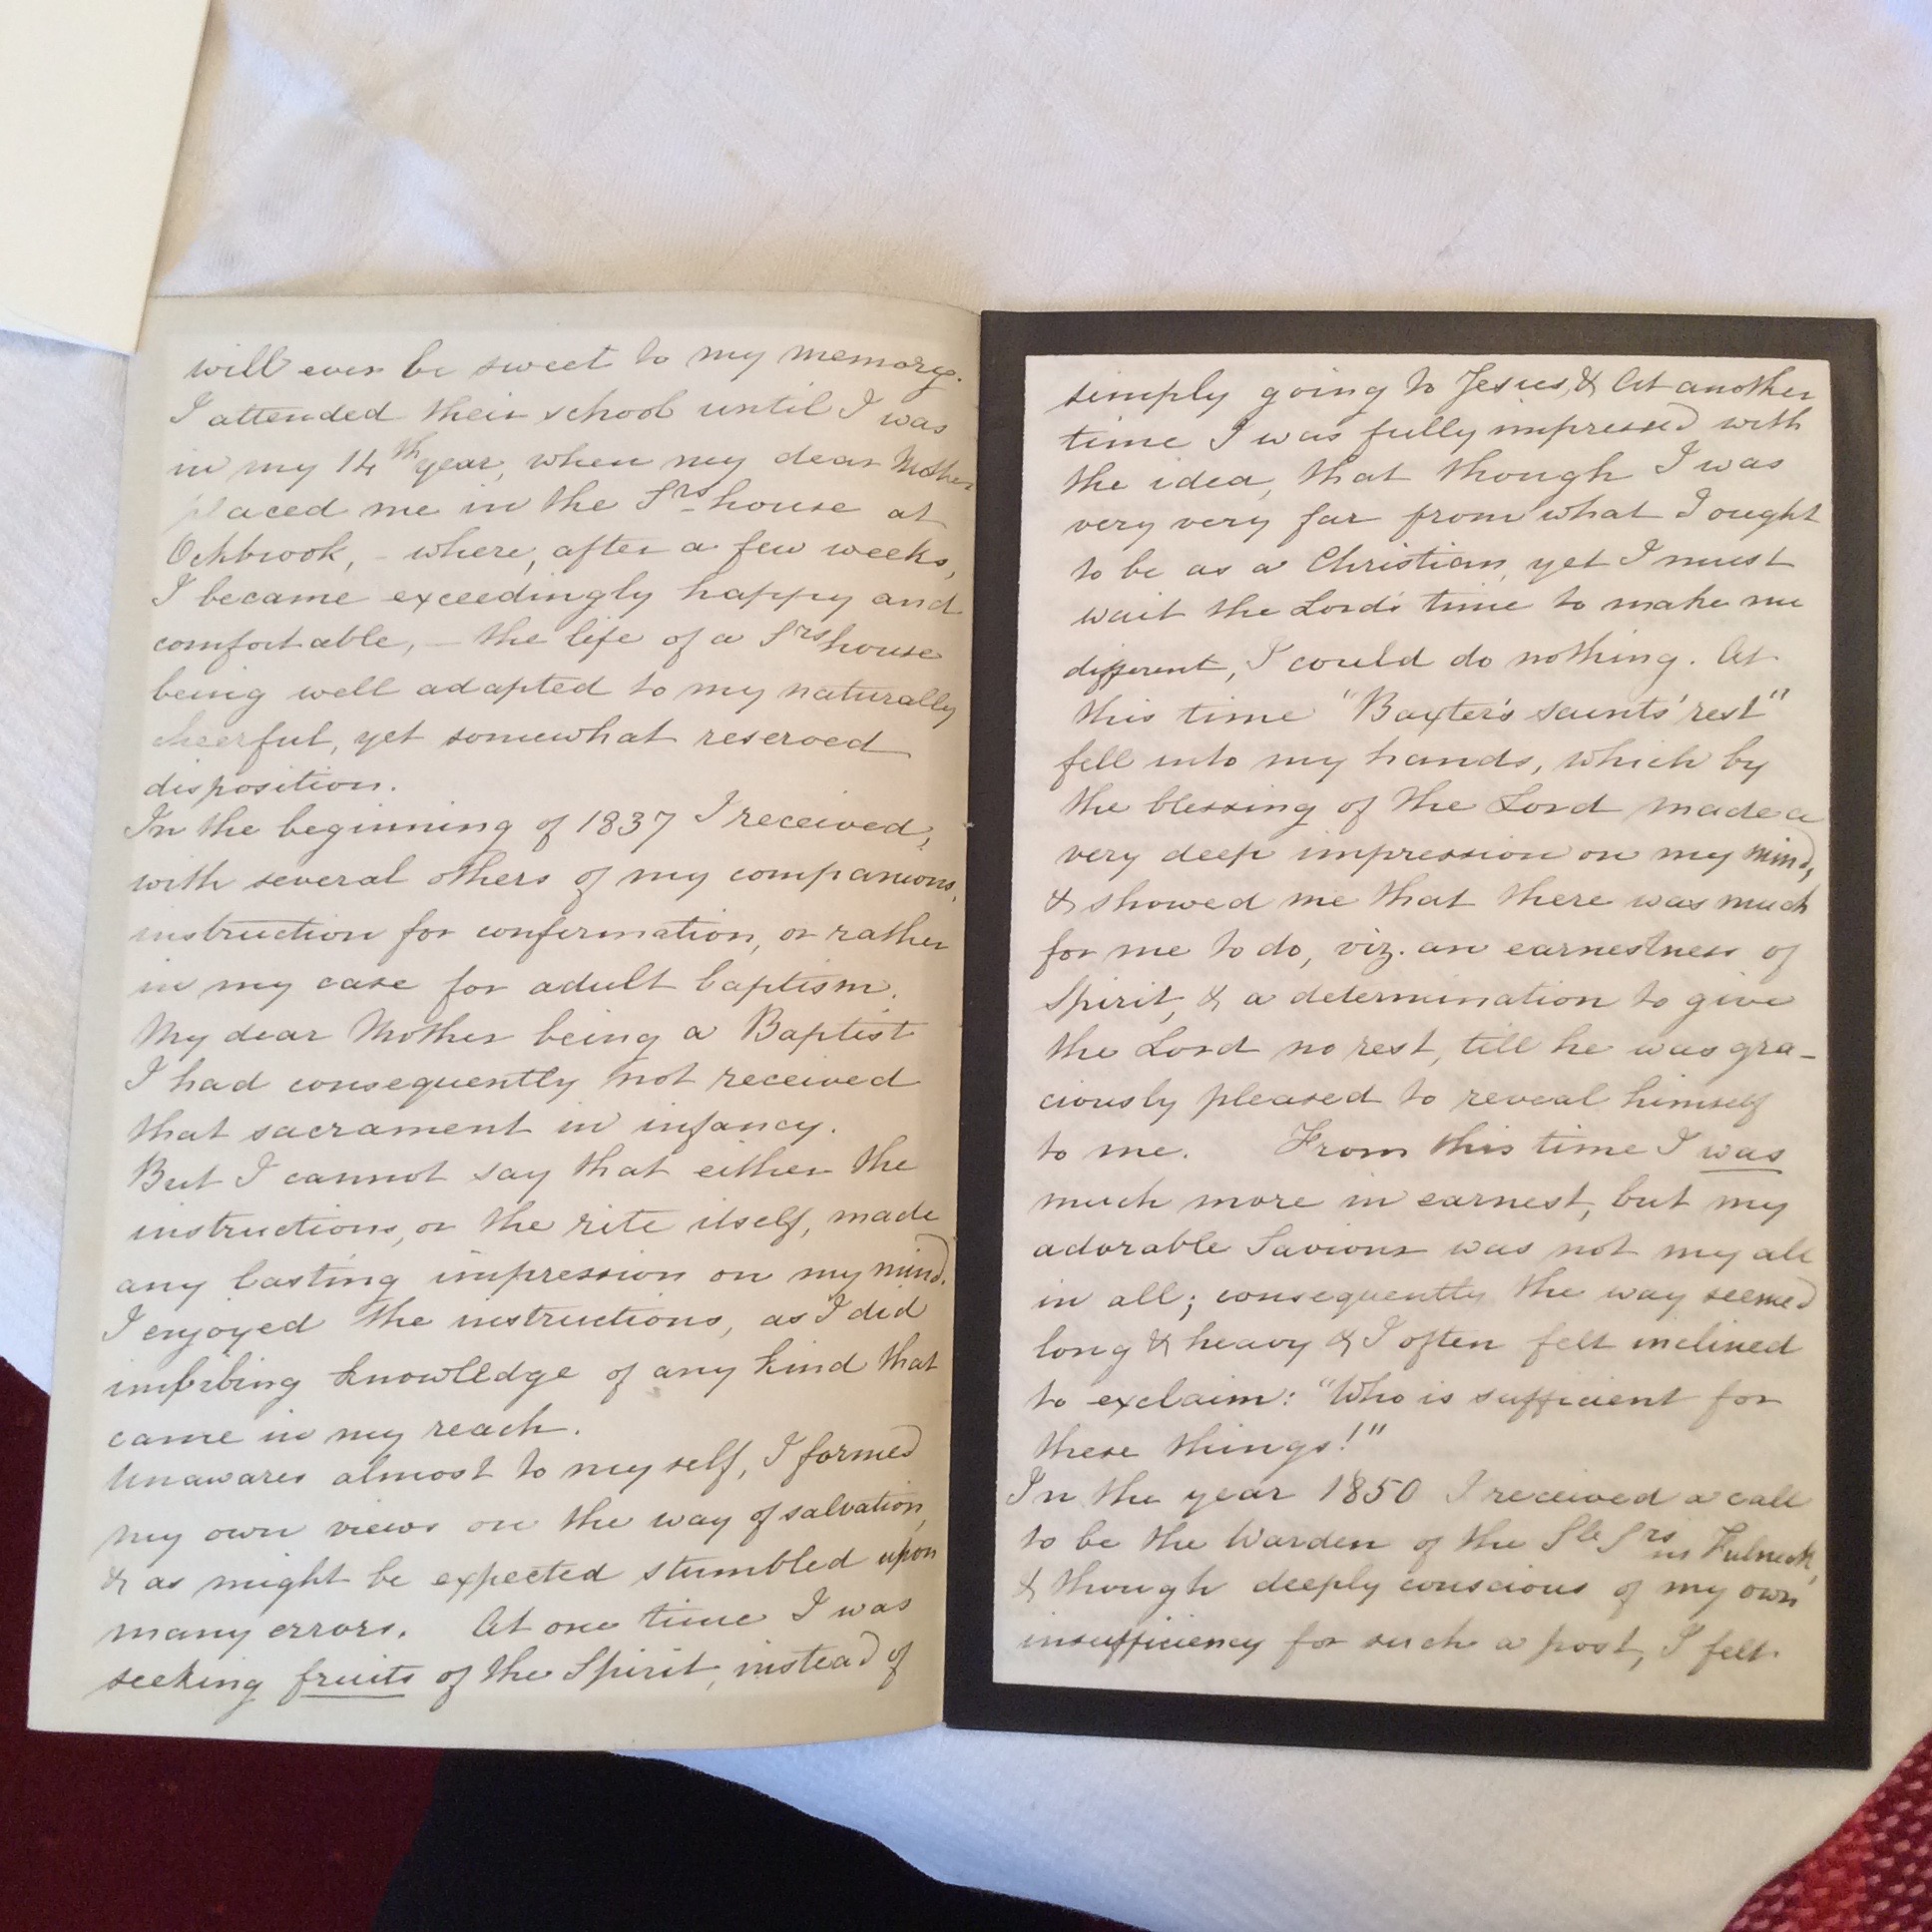 will ever be sweet to my memory.
I attended their school until I was
in my 14th year, when my dear Mother
placed me in the Srs house at
Ockbrook, - where, after a few weeks,
I became exceedingly happy and
comfortable, - the life of a Srs house
being well adapted to my naturally
cheerful, yet somewhat reserved
disposition.
In the beginning of 1837 I received,
with several others of my companions,
instruction for confirmation, or rather
in my case for adult baptism.
My dear Mother being a Baptist
I had consequently not received
that sacrament in infancy.
But I cannot say that either the
instructions, or the rite itself, made
any lasting impression on my mind.
I enjoyed the instructions, as I did
imbibing knowledge of any kind that
came in my reach.
Unawares almost to myself, I formed
my own views on the way of salvation,
& as might be expected stumbled upon
many errors. At one time I was
seeking fruits of the Spirit, instead of
simply going to Jesus, & At another
time I was fully impressed with
the idea, that though I was
very very far from what I ought
to be as a Christian, yet I must
wait the Lord's time to make me
different, I could do nothing. At
this time "Baxter's saints' rest"
fell into my hands, which by
the blessing of the Lord made a
very deep impression on my mind,
& showed me that there was much
for me to do, viz. an earnestness of
Spirit, & a determination to give
the Lord no rest, till he was gra-
ciously pleased to reveal himself
to me. From this time I was
much more in earnest, but my
adorable Saviour was not my all
in all; consequently the way seemed
long & heavy & I often felt inclined
to exclaim: "Who is sufficient for
these things!"
In the year 1850 I received a call
to be the Warden of the Sle Srs in Fulneck,
& though deeply conscious of my own
insufficiency for such a post, I felt